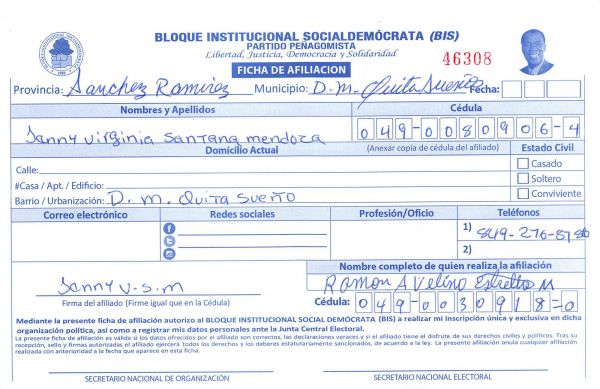 BLOQUE INSTITUCIONAL SOCIALDEMÓCRATA (BIS)
PARTIDO PEÑAGOMISTA
Libertad, Justicia, Democracia y Solidaridad
46308
FICHA DE AFILIACION
Provincia: Sanchez Ramirez Municipio: D.M. Quita Sueño Fecha:
Nombres y Apellidos Cédula
Janny Virginia Santana mendoza 049-0080906-4
Domicilio Actual (Anexar copia de cédula del afiliado) Estado Civil
Calle: Casado
#Casa / Apt. / Edificio: Soltero
Barrio / Urbanización: D. M. Quita Sueño Conviviente
Correo electrónico Redes sociales Profesión/Oficio Teléfonos
1) 849-276-8786
2)
Nombre completo de quien realiza la afiliación
Janny V-S.m Ramon Avelino Estrella M
Firma del afiliado (Firme igual que en la Cédula) Cédula: 049-0030918-0
Mediante la presente ficha de afiliación autorizo al BLOQUE INSTITUCIONAL SOCIAL DEMÓCRATA (BIS) a realizar mi inscripción única y exclusiva en dicha
organización política, así como a registrar mis datos personales ante la Junta Central Electoral.
La presente ficha de afiliación es válida si los datos ofrecidos por el afiliado son correctos, las declaraciones veraces y si el afiliado tiene el disfrute de sus derechos civiles y políticos. Tras su
recepción, sello y firmas autorizadas el afiliado ejercerá todos los derechos y los deberes estatutariamente sancionados, de acuerdo a la ley. La presente afiliación anula cualquier afiliación
realizada con anterioridad a la fecha que aparece en esta ficha.
SECRETARIO NACIONAL DE ORGANIZACIÓN SECRETARIO NACIONAL ELECTORAL